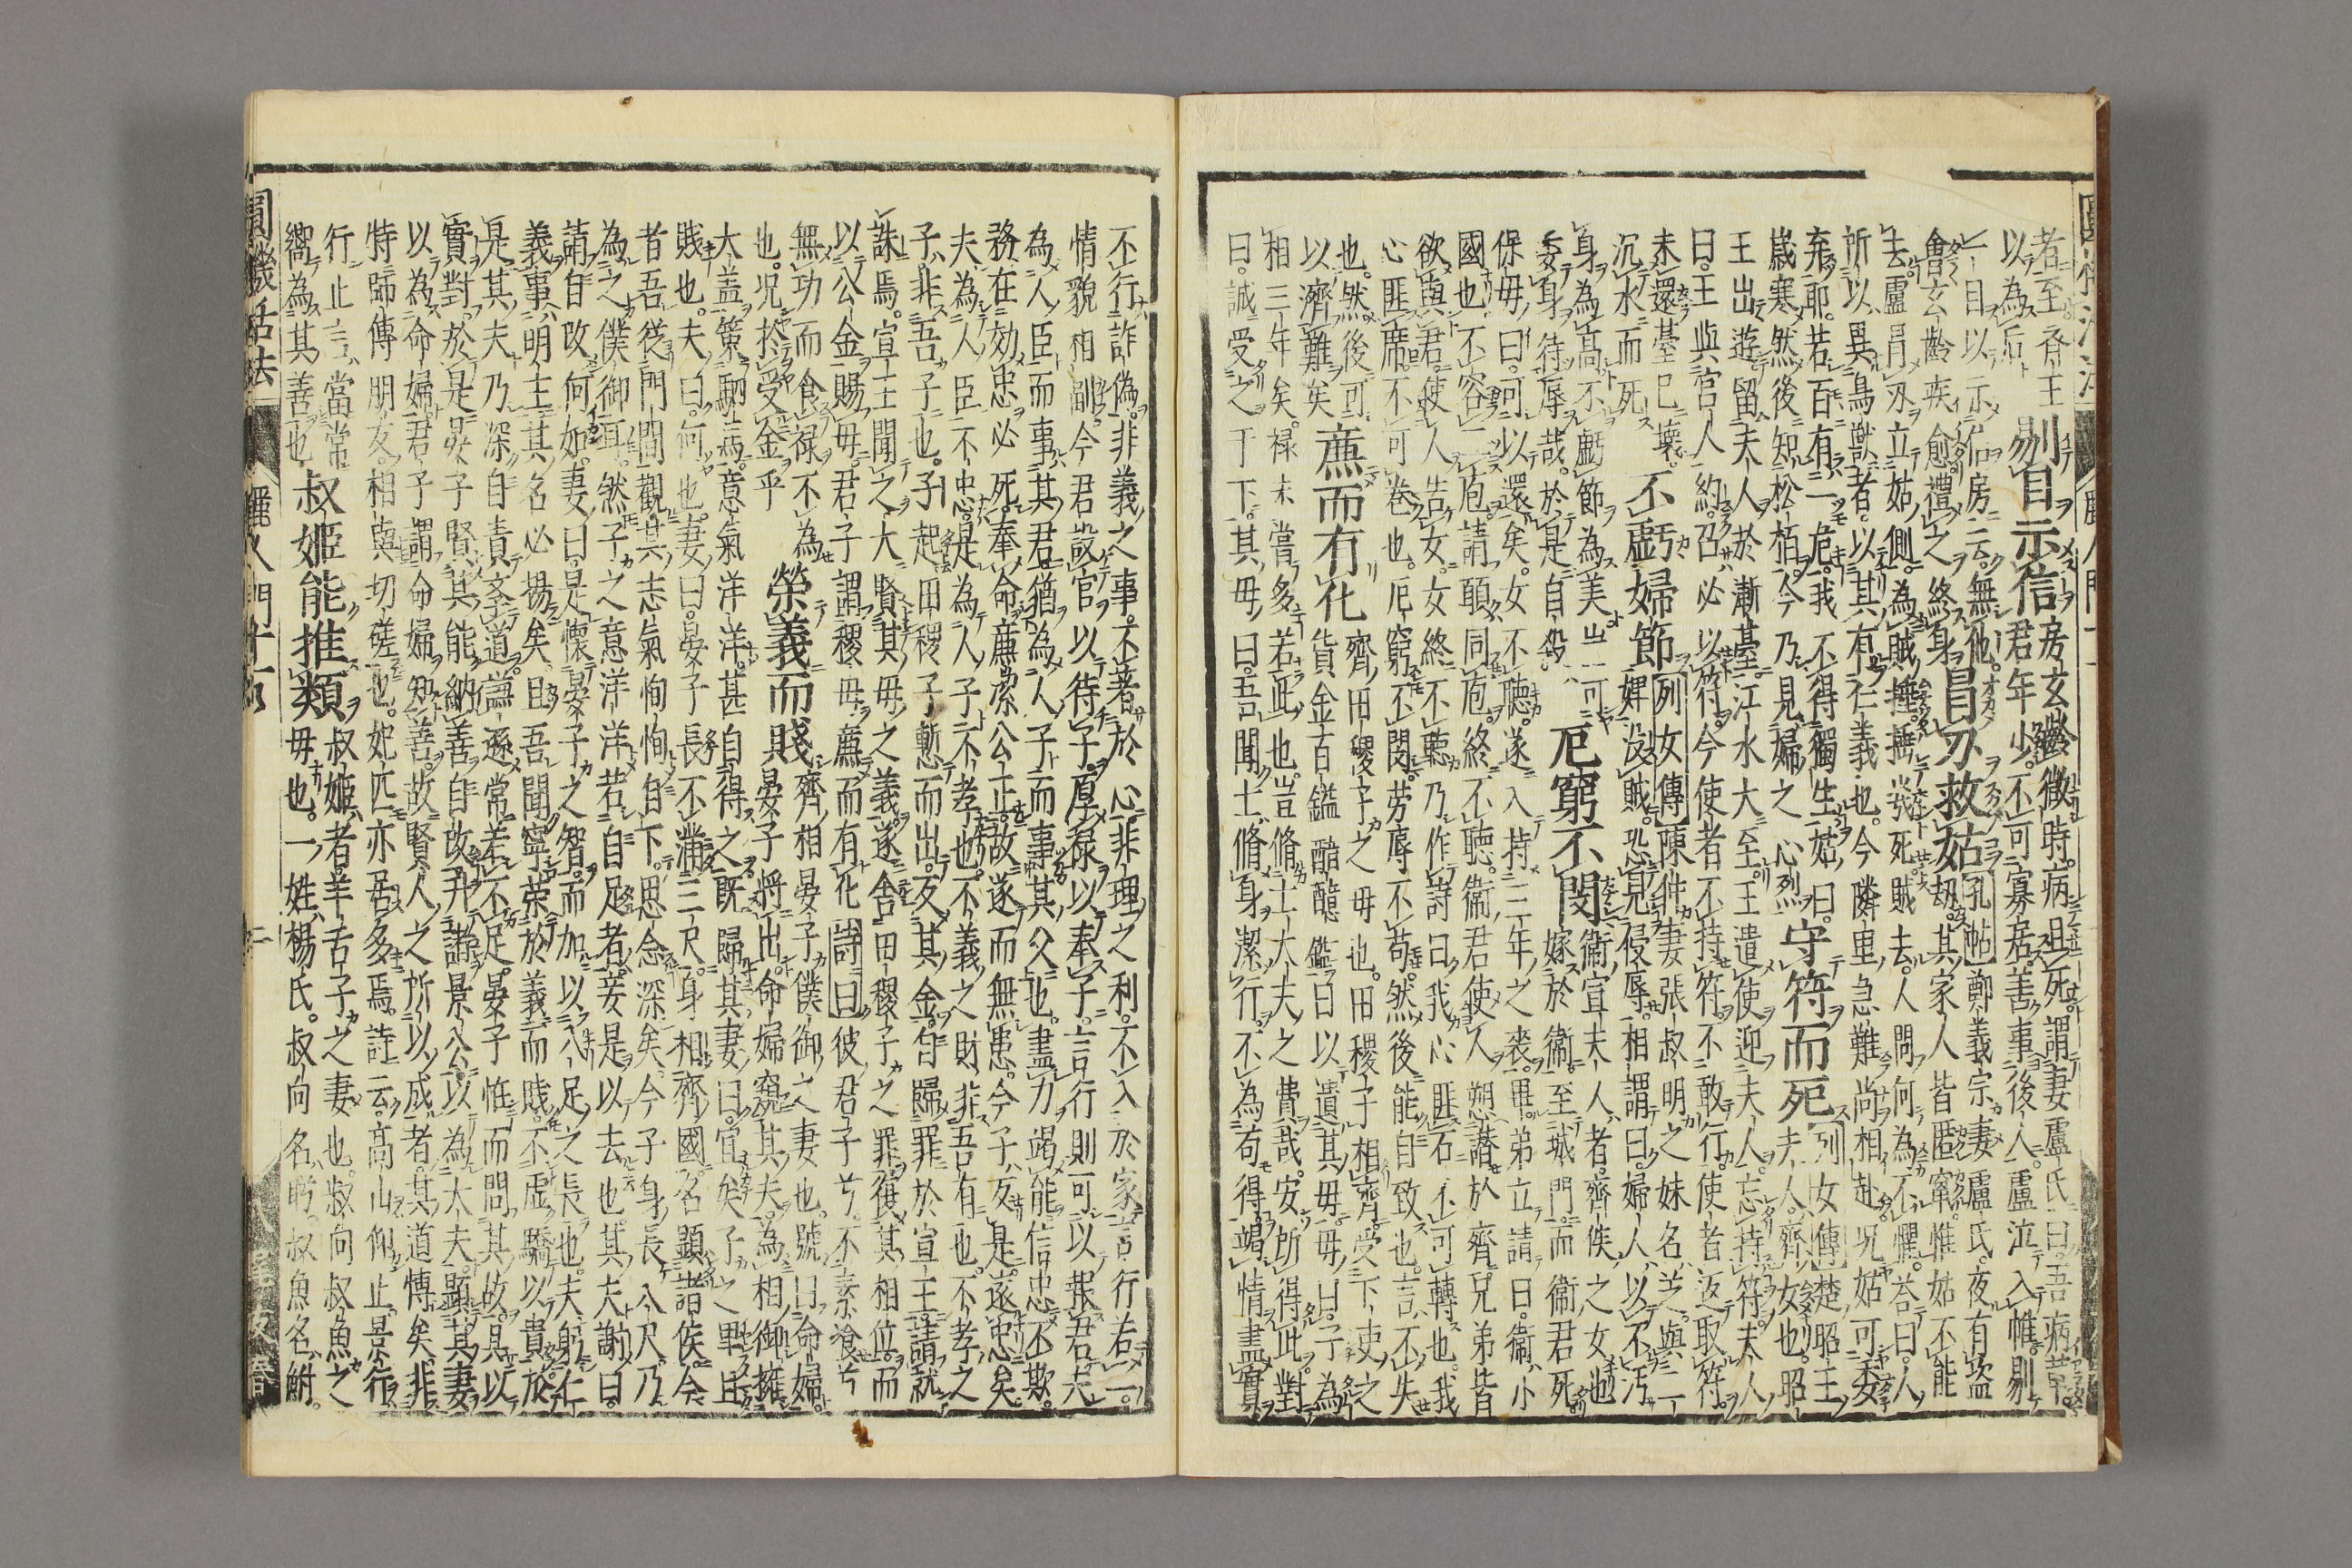 者至齊王
以為后
剔目示信
房玄齡微時。病且死。謂妻盧氏曰。吾病革。
君年少。不可寡居。善事後人。盧泣入帷。剔
一目以示信房云。無他。
會玄齡疾愈。禮之終身
冒刃救姑
孔帖鄭義宗妻盧氏。夜有盜
劫其家人皆匿竄惟姑不能
去。盧冒刃立姑側。為賊捶捶幾死。賊去。人問何為不懼。荅曰。人
所以異鳥獸者。以其有仁義也。今隣里急難尚相赴。况姑可委
棄耶。若百有一危。我不得獨生。姑曰。
歳寒然後知松栢。今乃見婦之心烈
守符而死
列女傳楚昭王
夫人。齊女也。昭
王出遊留夫人於漸臺。江水大至。王遣使迎夫人。忘持符。夫人
曰。王與宮人約。召必以符。今使者不持符。不敢行。使者返取符。
未還臺已壊。
沉水而死
不虧婦節
列女傳陳仲妻張叔明之妹名芝。與二
婢没賊。恐見侵辱。相謂曰。婦人以不汚
身為高。不虧節為美。豈可
委身待辱哉。於是自殺
厄窮不閔
衛宣夫人者。齊侯之女也
嫁於衛。至城門。而衛君死
保母曰。可以還矣。女不聽。遂入持三年之喪。畢。弟立請曰。衛小
國也。不容二庖。請願同庖。終不聽。衛君使人愬於齊兄弟皆
欲與君。使人告女。女終不聽。乃作詩曰。我心匪石不可轉也。我
心匪席。不可卷也。厄窮不閔。劳辱不苟。然後能自致也。言不失
也。然後可
以濟難矣
廉而有化
齊田稷子之母也。田稷子相齊。受下吏之
貨金百鎰以遺其母。母曰。子為
相三年矣。禄未嘗多若此也。豈脩士大夫之費哉。安所得此。對
曰。誠受之于下。其母曰。吾聞士脩身潔行。不為苟得。竭情盡實。
不行詐偽。非義之事。不著於心。非理之利。不入於家。言行若一。
情貌相副。今君設官以待子。厚祿以奉子。言行則可以報君。夫
為人臣而事其君。猶為人子而事其父也。盡力竭能。信忠不欺。
務在効忠。必死奉命。廉潔公正。故遂而無患。今子反是。遠忠矣。
夫為人臣不忠。是為人子不孝也。不義之財。非吾有也。不孝之
子。非吾子也。子起。田稷子慙而出。反其金。自歸罪於宣王。請就
誅焉。宣王聞之。大賢其母之義。遂舍田稷子之罪。復其相位。而
以公金賜母。君子謂稷母廉而有化
詩曰彼君子兮。不素飡兮
無功而食祿不為
也。况於受金乎
榮義而賤
齊相晏子僕御之妻也。號曰命婦。
晏子將出。命婦窺其夫。為相御。擁
大蓋。策駟馬。意氣洋洋。甚自得之。既歸。其妻曰。宜矣子之卑且
賎也。夫曰。何也。妻曰。晏子長不滿三尺。身相齊國。名顯諸侯。今
者吾從門間觀其志氣恂恂自下。思念深矣。今子身長八尺。乃
為之僕御耳。然子之意洋洋若自足者。妾是以去也。其夫謝曰。
請自改何如。妻曰。是懷晏子之智。而加以八尺之長也。夫躬仁
義。事明主。其名必揚矣。且吾聞寧榮於義而賎。不虚驕以貴。於
是其夫乃深自責。學道謙遜。常若不足。晏子怪而問其故。具以
實對。於是晏子賢其能納善自改。升諸景公。以為大夫。顯其妻
以為命婦。君子謂命婦知善。故賢人之所以成者。其道博矣。非
特師傅朋友。相與切磋也。妃匹亦居多焉。詩云。高山仰止。景行
行止。言當常
嚮為其善也
叔姬能推類
叔姬者。羊舌子之妻也。叔向叔魚之
母也。一姓楊氏。叔向名肸。叔魚名鮒。
圓機活法
麗人門十一